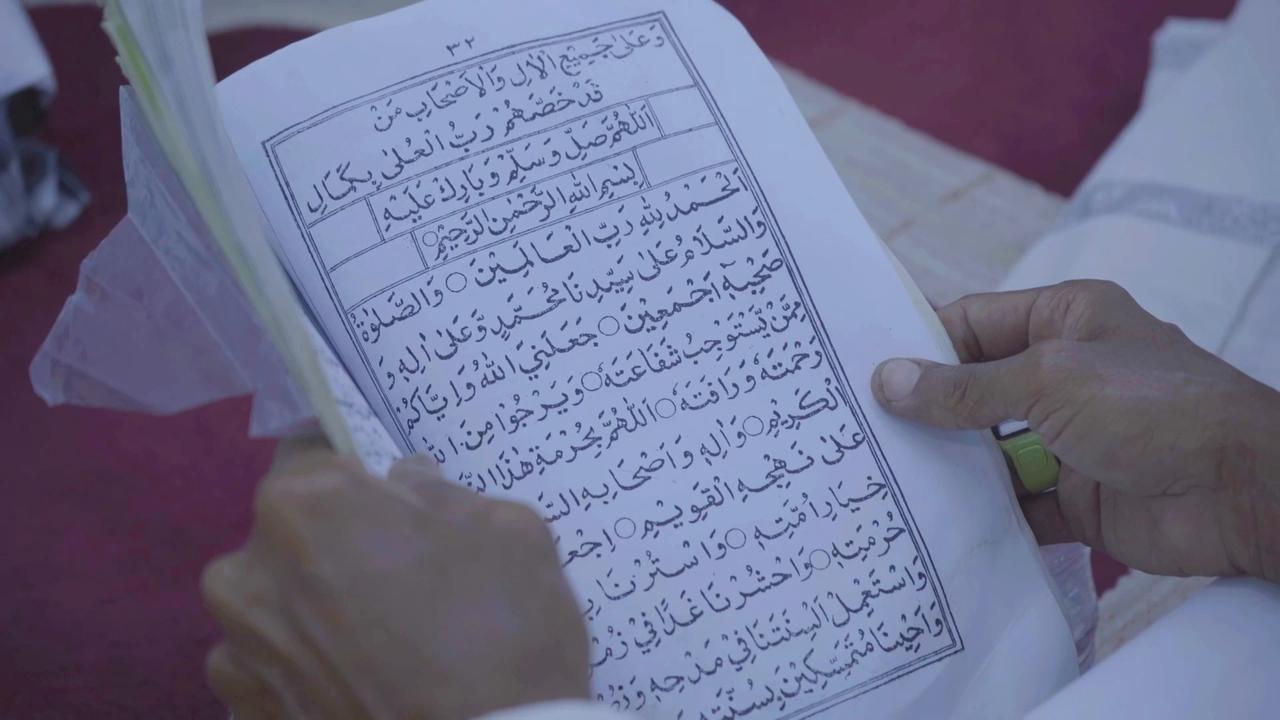 ٣٢
وَعَلٰى جَمِيْعِ الْاٰلِ وَالْاَصْحَابِ مَنْ
قَدْ خَصَّهُمْ رَبُّ الْعُلٰى بِكَمَالِ
اَللّٰهُمَّ صَلِّ وَسَلِّمْ وَبَارِكْ عَلَيْهِ
بِسْمِ اللهِ الرَّحْمٰنِ الرَّحِيْمِ○
اَلْحَمْدُ لِلّٰهِ رَبِّ الْعَالَمِيْنَ ○ وَالصَّلٰوةُ
وَالسَّلَامُ عَلٰى سَيِّدِنَا مُحَمَّدٍ وَّعَلٰى اٰلِهٖ وَ
صَحْبِهٖٓ اَجْمَعِيْنَ ○ جَعَلَنِيَ اللهُ وَاِيَّاكُمْ
مِمَّنْ يَّسْتَوْجِبُ شَفَاعَتَهٗ ○ وَيَرْجُوْا مِنَ
رَحْمَتَهٗ وَرَافَتَهٗ ○ اَللّٰهُمَّ بِحُرْمَةِ هٰذَا
الْكَرِيْمِ ○ وَاٰلِهٖ وَاَصْحَابِهِ
عَلٰى نَهْجِهِ الْقَوِيْمِ ○
خِيَارِ اُمَّتِهٖ ○ وَاسْتُرْنَا
حُرْمَتِهٖ ○ وَاحْشُرْنَا غَدًا فِيْ
وَاسْتَعْمِلْ اَلْسِنَتَنَا فِيْ مَدْحِهٖ
وَاَحْيِنَا مُتَمَسِّكِيْنَ بِسُنَّتِهٖ